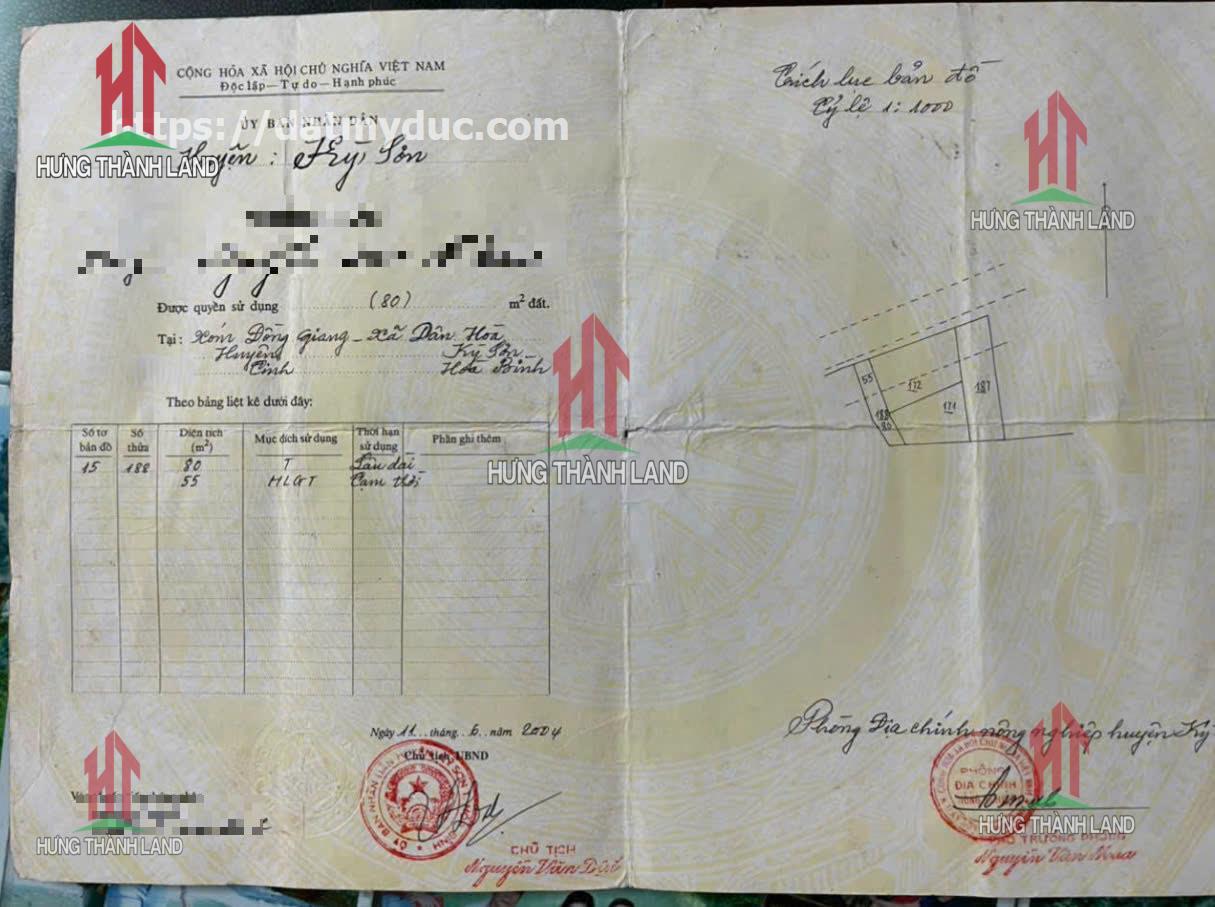 CỘNG HÒA XÃ HỘI CHỦ NGHĨA VIỆT NAM
Độc lập — Tự do — Hạnh phúc
https://datmyduc.com
ỦY BAN NHÂN DÂN
Huyện: Kỳ Sơn
HƯNG THÀNH LAND
Được quyền sử dụng (80) m² đất.
Tại: Xóm Đồng Giang - Xã Dân Hoà
Huyện Kỳ Sơn
Tỉnh Hoà Bình
Theo bảng liệt kê dưới đây:
Số tờ bản đồ Số thửa Diện tích (m²) Mục đích sử dụng Thời hạn sử dụng Phần ghi thêm
15 188 80 T Lâu dài
55 HLGT Tạm thời
Ngày 11 tháng 6 năm 2004
Chủ tịch UBND
CHỦ TỊCH
Nguyễn Văn
HƯNG THÀNH LAND
HƯNG THÀNH LAND
Trích lục bản đồ
Tỷ lệ 1:1000
HƯNG THÀNH LAND
55
172
187
171
188
80
Phòng Địa chính nông nghiệp huyện Kỳ
PHÒNG
ĐỊA CHÍNH
HƯNG THÀNH LAND
PHÓ TRƯỞNG PHÒNG
Nguyễn Văn